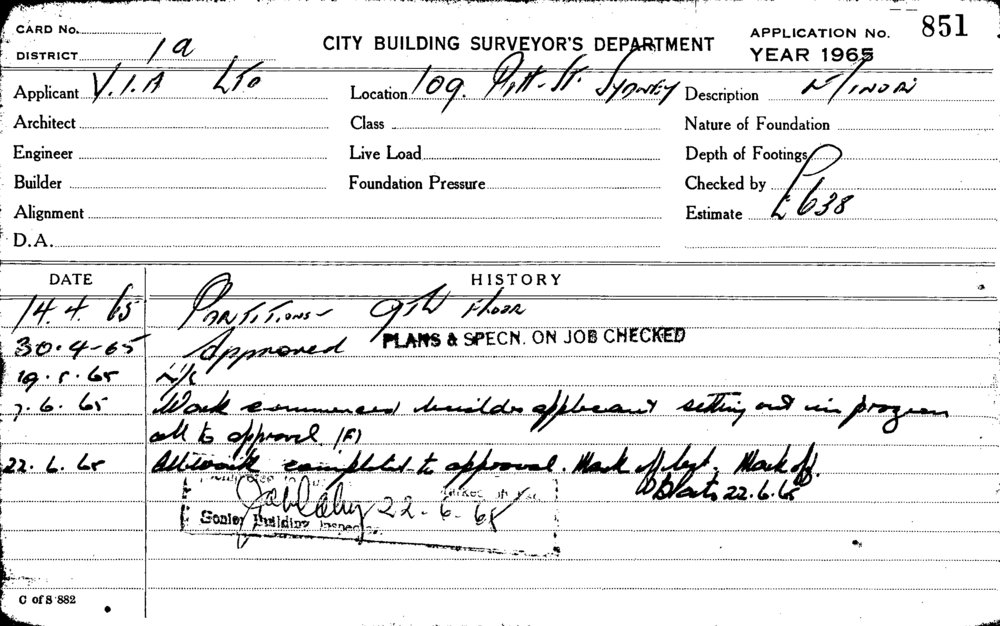 CARD No.
851
APPLICATION No.
DISTRICT 1a
CITY BUILDING SURVEYOR'S DEPARTMENT
YEAR 1965
Applicant V.I.A LTD
Location 109. Pitt. St. SYDNEY
Description
Architect
Class
Nature of Foundation
Engineer
Live Load
Depth of Footings
Builder
Foundation Pressure
Checked by
Alignment
Estimate £638
D.A.
DATE HISTORY
14. 4. 65 PARTITIONS - 9TH FLOOR
30.4-65 Approved PLANS & SPECN. ON JOB CHECKED
19.5.65 N/C
7.6.65 Work commenced builder applicant setting out in progress
all to approval (F)
22.6.65 All work completed to approval. Mark off . Mark off.
22.6.65
22-6-65
Senior Building Inspector
C of S 882